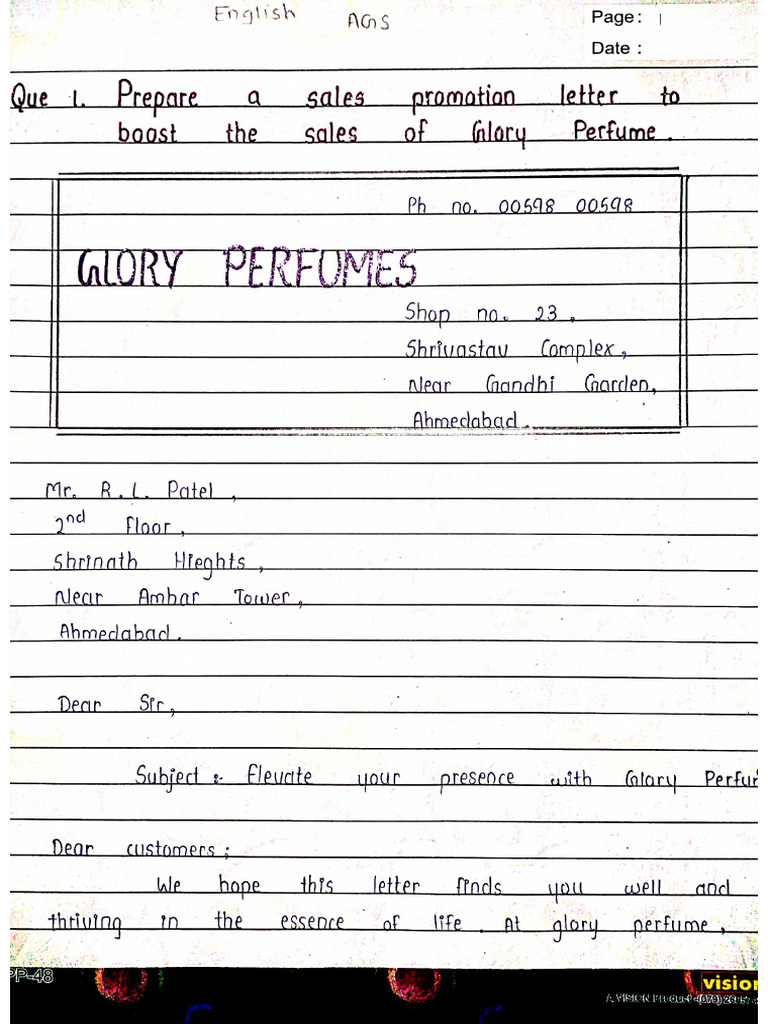 English AGS Page: 1
Date :
Que 1. Prepare a sales promotion letter to
boost the sales of Glory Perfume.
Ph no. 00598 00598
GLORY PERFUMES
Shop no. 23,
Shrivastav Complex,
Near Gandhi Garden,
Ahmedabad.
Mr. R. L. Patel,
2nd Floor,
Shrinath Hieghts,
Near Ambar Tower,
Ahmedabad.
Dear Sir,
Subject :- Elevate your presence with Glory Perfum
Dear customers;
We hope this letter finds you well and
thriving in the essence of life. At glory perfume,
PP-48
vision
A VISION Product